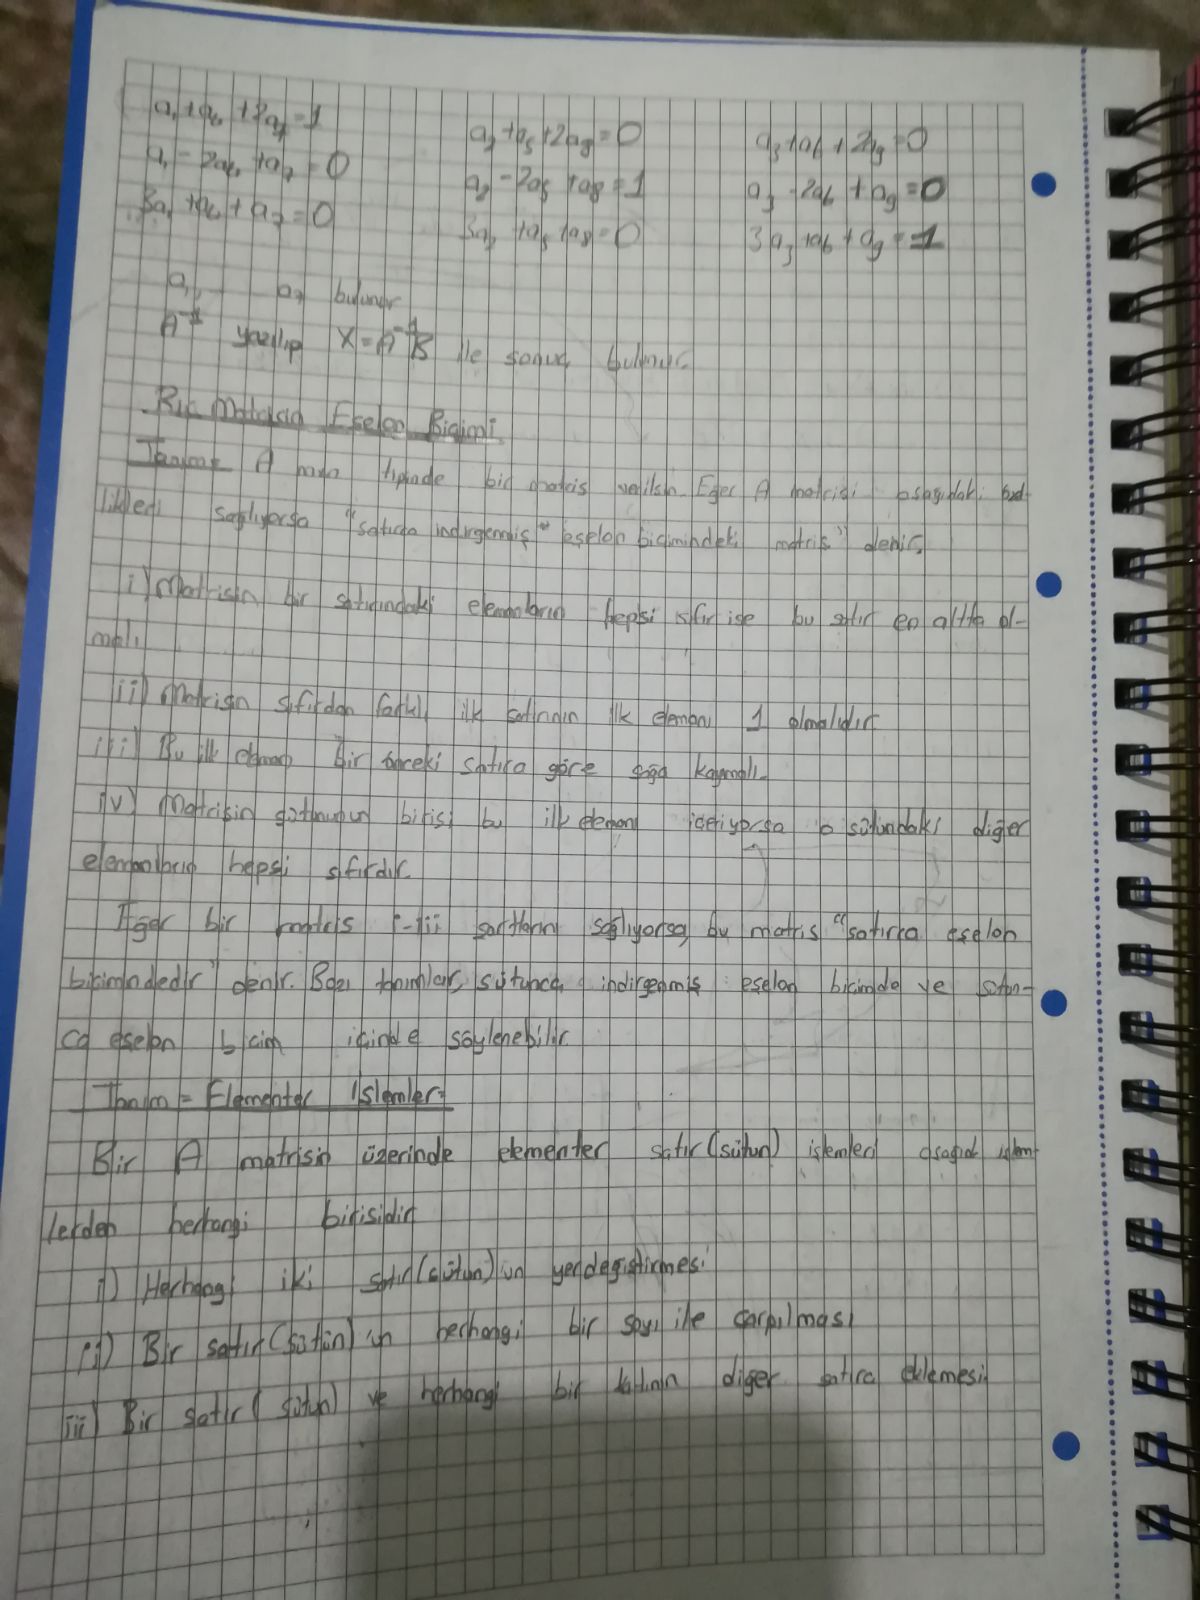 a₁ + a₄ + 2a₇ = 1
a₂ + a₅ + 2a₈ = 0
a₃ + a₆ + 2a₉ = 0
a₁ - 2a₄ + a₇ = 0
a₂ - 2a₅ + a₈ = 1
a₃ - 2a₆ + a₉ = 0
3a₁ + a₄ + a₇ = 0
3a₂ + a₅ + a₈ = 0
3a₃ + a₆ + a₉ = 1
bulunur
A⁻¹ yazılıp X = A⁻¹B ile sonuç bulunur.
Bir Matrisin Eşelon Biçimi
Tanım= A mxn tipinde bir matris verilsin. Eger A matrisi aşagıdaki özel-
likleri saglıyorsa "satırca indirgenmiş" eşelon biçimindeki matris" denir.
i) Matrisin bir satırındaki elemanların hepsi sıfır ise bu satır en altta ol-
malı
ii) Matrisin sıfırdan farklı ilk satırının ilk elemanı 1 olmalıdır
iii) Bu ilk eleman bir önceki satıra göre saga kaymalı.
iv) Matrisin sütununun birisi bu ilk elemanı içeriyorsa o sütundaki diğer
elemanların hepsi sıfırdır.
Eger bir matris i-iii şartlarını sağlıyorsa bu matris "satırca eşelon
biçimindedir" denir. Bazı tanımlar, sütunca indirgenmiş eşelon biçimde ve sütun-
ca eşelon biçim içinde söylenebilir.
Tanım = Elementer İşlemler=
Bir A matrisin üzerinde elementer satır (sütun) işlemleri asagıdaki işlem-
lerden herhangi birisidir
i) Herhangi iki satır (sütun)'un yerdegiştirmesi
ii) Bir satır (sütun)'un herhangi bir sayı ile çarpılması
iii) Bir satır (sütun) ve herhangi bir katının diger satıra eklemesi